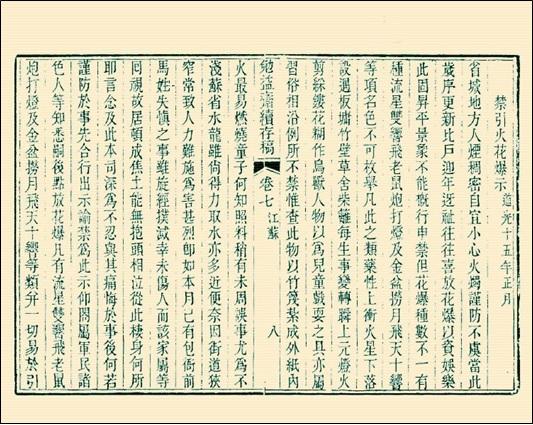 禁引火花爆示 道光十五年正月
省城地方人煙稠密自宜小心火燭謹防不虞當此
歲序更新比戶迎年迓祉往往喜放花爆以資娛樂
此固昇平景象不能概行申禁但花爆種數不一有
種流星雙響飛老鼠炮打燈及金盆撈月飛天十響
等項名色不可枚舉凡此之類藥性上衝火星下落
設遇板墉竹壁草舍柴籬每生事變轉瞬上元燈火
剪綵鏤花糊作鳥獸人物以爲兒童戲耍之具亦屬
習俗相沿例所不禁惟查此物以竹篾紮成外紙內
勉益齋續存稿 卷七 江蘇 八
火最易燃燒童子何知照料稍有未周誤事尤爲不
淺蘇省水龍雖尙得力取水亦多近便奈因街道狹
窄常致人力難施爲害甚烈卽如本月已有包衙前
馬姓失愼之事雖旋經撲滅幸未傷人而該家屬等
囘視故居頓成焦土能無抱頭相泣從此棲身何所
耶言念及此本司深爲不忍與其痛悔於事後何若
謹防於事先合行出示諭禁爲此示仰闔屬軍民諸
色人等知悉嗣後點放花爆凡有流星雙響飛老鼠
炮打燈及金盆撈月飛天十響等類幷一切易於引